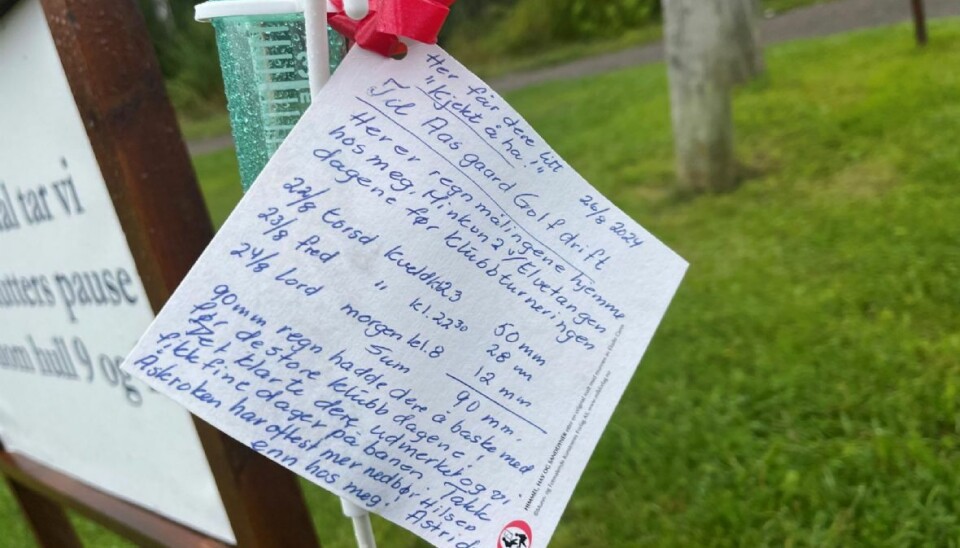 al tar vi
utters pause
om hull 9 og
Her får dere litt
"Kjekt å ha."
26/8 2024
Til Aasgaard Golf drift
Her er regnmålingene hjemme
hos meg, Minkun 2 v/Elvetangen
dagene før Klubbturneringen
22/8 torsd kveld kl 23 50 mm
23/8 fred " kl. 22 30 28 mm
24/8 Lord morgen kl. 8 12 mm
Sum 90 mm.
90 mm regn hadde dere å baske med
før de store klubbdagene,
det klarte dere udmerket og vi
fikk fine dager på banen. Takk
Askroken har oftest mer nedbør
enn hos meg. Hilsen
Astrid